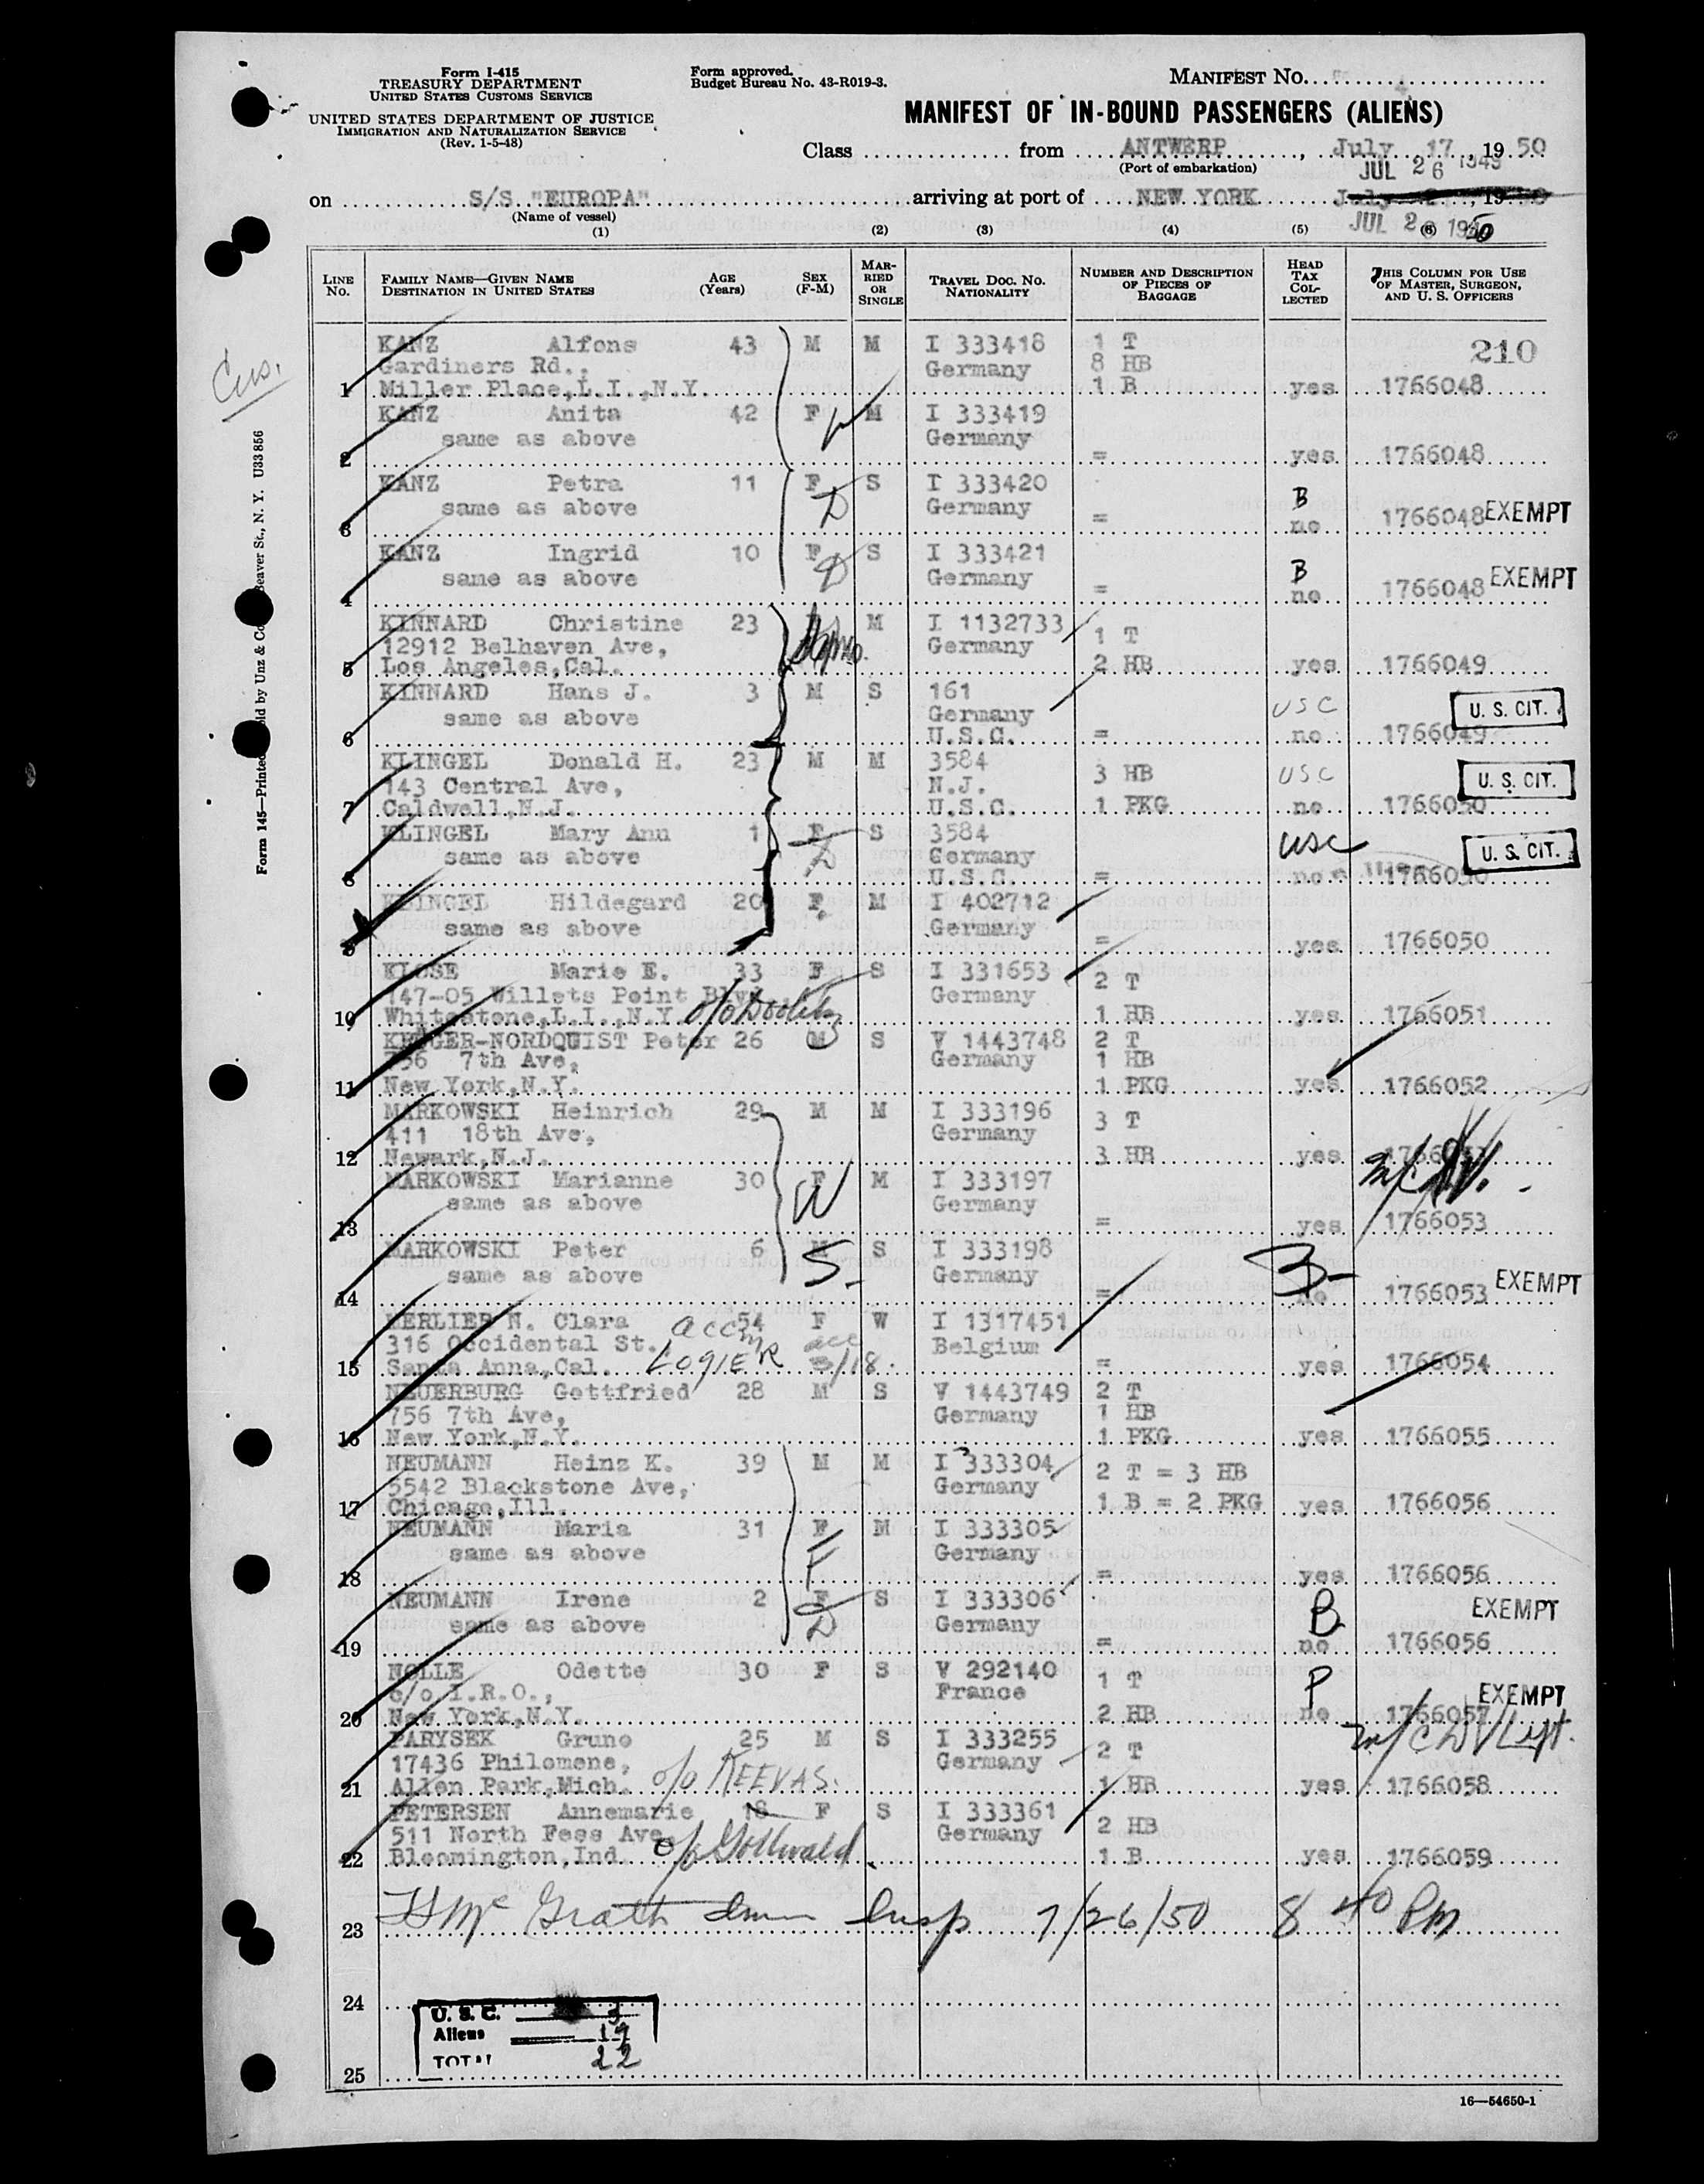 Form I-415
TREASURY DEPARTMENT
UNITED STATES CUSTOMS SERVICE
UNITED STATES DEPARTMENT OF JUSTICE
IMMIGRATION AND NATURALIZATION SERVICE
(Rev. 1-5-48)
Form approved.
Budget Bureau No. 43-R019-3.
MANIFEST No.
MANIFEST OF IN-BOUND PASSENGERS (ALIENS)
Class from ANTWERP, July 17, 1950
(Port of embarkation)
JUL 26 1949
on S/S. "EUROPA" arriving at port of NEW YORK
(Name of vessel)
JUL 26 1950
(1) (2) (3) (4) (5) (6)
LINE No. FAMILY NAME—GIVEN NAME DESTINATION IN UNITED STATES AGE (Years) SEX (F-M) MARRIED OR SINGLE TRAVEL DOC. NO. NATIONALITY NUMBER AND DESCRIPTION OF PIECES OF BAGGAGE HEAD TAX COLLECTED THIS COLUMN FOR USE OF MASTER, SURGEON, AND U. S. OFFICERS
Cus.
Form 145—Printed
old by Unz & Co
Beaver St., N. Y. U33856
210
KANZ Alfons 43 M M I 333418 1 T
Gardiners Rd., Germany 8 HB
1 Miller Place,L.I.,N.Y. 1 B yes 1766048
KANZ Anita 42 F M I 333419
same as above Germany
2 = yes 1766048
KANZ Petra 11 F S I 333420 B
same as above D Germany
3 = no 1766048 EXEMPT
KANZ Ingrid 10 F S I 333421 B
same as above D Germany
4 = no 1766048 EXEMPT
KINNARD Christine 23 M I 1132733 1 T
12912 Belhaven Ave, Germany
5 Los Angeles,Cal. 2 HB yes 1766049
KINNARD Hans J. 3 M S 161 USC U. S. CIT.
same as above Germany
6 U.S.C. = no 1766049
KLINGEL Donald H. 23 M M 3584 3 HB USC U. S. CIT.
143 Central Ave, N.J.
7 Caldwell,N.J. U.S.C. 1 PKG no 1766050
KLINGEL Mary Ann 1 F S 3584 USC U. S. CIT.
same as above D Germany
8 U.S.C. = no 1766050
KLINGEL Hildegard 20 F M I 402712
same as above Germany
9 = yes 1766050
KLOSE Marie E. 33 F S I 331653 2 T
147-05 Willets Point Blvd Germany
10 Whitestone,L.I.,N.Y. 1 HB yes 1766051
KRUGER-NORDQUIST Peter 26 M S V 1443748 2 T
756 7th Ave, Germany 1 HB
11 New York,N.Y. 1 PKG yes 1766052
MARKOWSKI Heinrich 29 M M I 333196 3 T
411 18th Ave, Germany
12 Newark,N.J. 3 HB yes 1766053
MARKOWSKI Marianne 30 F M I 333197
same as above W Germany
13 = yes 1766053
MARKOWSKI Peter 6 M S I 333198
same as above S. Germany B
14 = no 1766053 EXEMPT
MERLIER N. Clara 54 F W I 1317451
316 Occidental St. acc Belgium
15 Santa Anna,Cal. LOGIER 3/18 = yes 1766054
NEUERBURG Gottfried 28 M S V 1443749 2 T
756 7th Ave, Germany 1 HB
16 New York,N.Y. 1 PKG yes 1766055
NEUMANN Heinz K. 39 M M I 333304 2 T = 3 HB
5542 Blackstone Ave, Germany
17 Chicago,Ill. 1 B = 2 PKG yes 1766056
NEUMANN Maria 31 F M I 333305
same as above F Germany
18 = yes 1766056
NEUMANN Irene 2 F S I 333306 B EXEMPT
same as above D Germany
19 = no 1766056
NOLLE Odette 30 F S V 292140 1 T P
c/o I.R.O., France EXEMPT
20 New York,N.Y. 2 HB no 1766057
PARYSEK Gruno 25 M S I 333255 2 T
17436 Philomene, Germany
21 Allen Park,Mich. o/o KEEVAS. 1 HB yes 1766058
PETERSEN Annemarie 18 F S I 333361 2 HB
511 North Fess Ave Germany
22 Bloomington,Ind. c/o Gottwald 1 B yes 1766059
23 McGrath Imm Insp 7/26/50 8 40 PM
24
U. S. C. 3
Aliens 19
TOTAL 22
25
16—54650-1